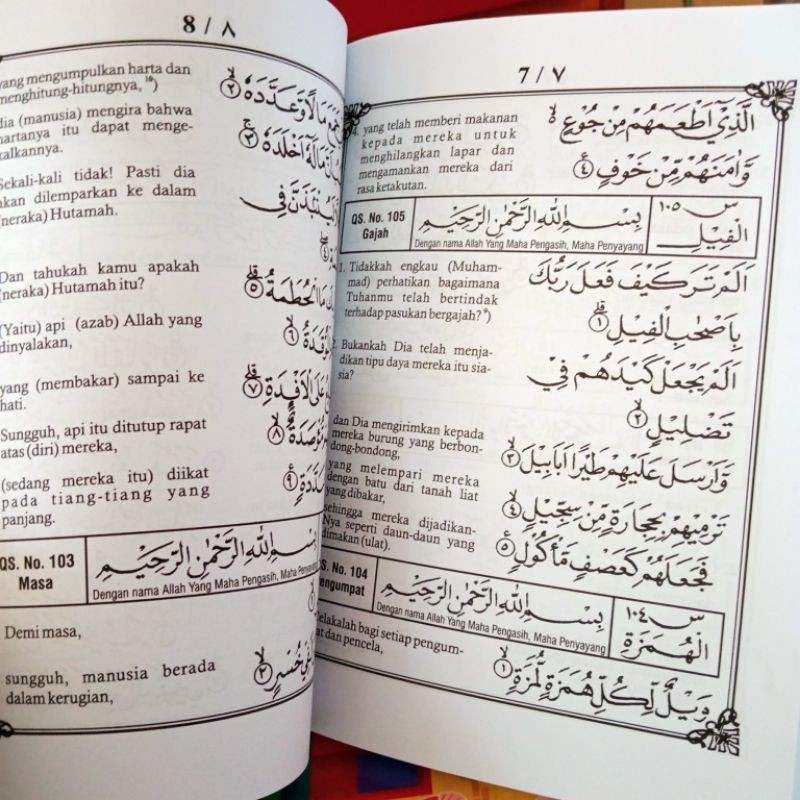 7 / ٧
4. yang telah memberi makanan
kepada mereka untuk
menghilangkan lapar dan
mengamankan mereka dari
rasa ketakutan.
الَّذِيْٓ اَطْعَمَهُمْ مِنْ جُوْعٍ ەۙ
وَّاٰمَنَهُمْ مِّنْ خَوْفٍ ٤
QS. No. 105
Gajah
بِسْمِ اللهِ الرَّحْمٰنِ الرَّحِيْمِ
Dengan nama Allah Yang Maha Pengasih, Maha Penyayang
س ١٠٥
الْفِيْلِ
1. Tidakkah engkau (Muham-
mad) perhatikan bagaimana
Tuhanmu telah bertindak
terhadap pasukan bergajah?*)
2. Bukankah Dia telah menja-
dikan tipu daya mereka itu sia-
sia?
dan Dia mengirimkan kepada
mereka burung yang berbon-
dong-bondong,
yang melempari mereka
dengan batu dari tanah liat
yang dibakar,
sehingga mereka dijadikan-
Nya seperti daun-daun yang
dimakan (ulat).
اَلَمْ تَرَ كَيْفَ فَعَلَ رَبُّكَ
بِاَصْحٰبِ الْفِيْلِ ١
اَلَمْ يَجْعَلْ كَيْدَهُمْ فِيْ
تَضْلِيْلٍ ٢
وَّاَرْسَلَ عَلَيْهِمْ طَيْرًا اَبَابِيْلَ ٣
تَرْمِيْهِمْ بِحِجَارَةٍ مِّنْ سِجِّيْلٍ ٤
فَجَعَلَهُمْ كَعَصْفٍ مَّأْكُوْلٍ ٥
S. No. 104
engumpat
بِسْمِ اللهِ الرَّحْمٰنِ الرَّحِيْمِ
Dengan nama Allah Yang Maha Pengasih, Maha Penyayang
س ١٠٤
الْهُمَزَةِ
elakalah bagi setiap pengum-
at dan pencela,
وَيْلٌ لِّكُلِّ هُمَزَةٍ لُّمَزَةٍ ١
8 / ٨
yang mengumpulkan harta dan
menghitung-hitungnya,
dia (manusia) mengira bahwa
hartanya itu dapat menge-
kalkannya.
Sekali-kali tidak! Pasti dia
akan dilemparkan ke dalam
(neraka) Hutamah.
Dan tahukah kamu apakah
(neraka) Hutamah itu?
(Yaitu) api (azab) Allah yang
dinyalakan,
yang (membakar) sampai ke
hati.
Sungguh, api itu ditutup rapat
atas (diri) mereka,
(sedang mereka itu) diikat
pada tiang-tiang yang
panjang.
مَالًا وَّعَدَّدَهٗ ٢
مَالَهٗٓ اَخْلَدَهٗ ٣
لَيُنْبَذَنَّ فِى
٤
مَا الْحُطَمَةُ ٥
٦
عَلَى الْاَفْـِٕدَةِ ٧
مُّؤْصَدَةٌ ٨
٩
QS. No. 103
Masa
بِسْمِ اللهِ الرَّحْمٰنِ الرَّحِيْمِ
Dengan nama Allah Yang Maha Pengasih, Maha Penyayang
Demi masa,
sungguh, manusia berada
dalam kerugian,
١
لَفِيْ خُسْرٍ ٢